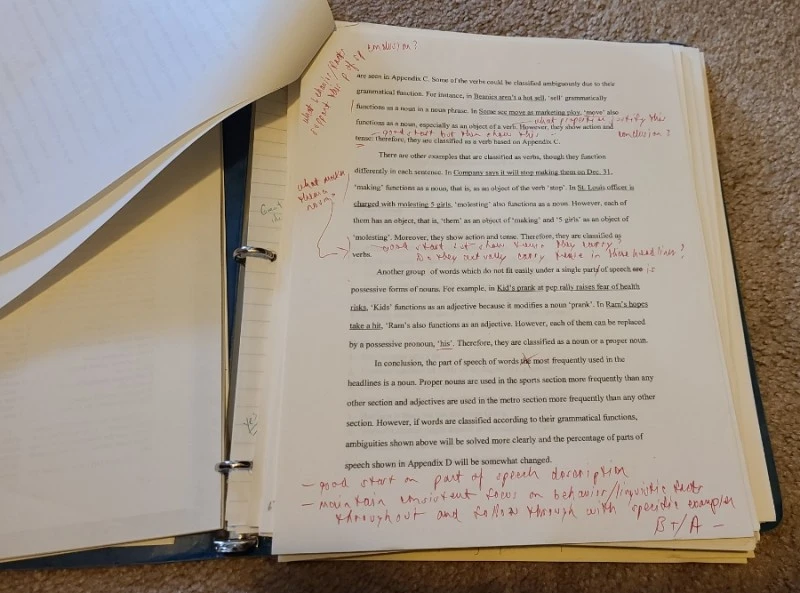 what behavior/facts
support this p of sp conclusion?
are seen in Appendix C. Some of the verbs could be classified ambiguously due to their
grammatical function. For instance, in Beanies aren't a hot sell, 'sell' grammatically
functions as a noun in a noun phrase. In Some see move as marketing ploy, 'move' also
functions as a noun, especially as an object of a verb. However, they show action and
what properties justify this
conclusion?
good start but then show this
tense; therefore, they are classified as a verb based on Appendix C.
There are other examples that are classified as verbs, though they function
differently in each sentence. In Company says it will stop making them on Dec. 31,
what makes
them a
noun?
'making' functions as a noun, that is, as an object of the verb 'stop'. In St. Louis officer is
charged with molesting 5 girls, 'molesting' also functions as a noun. However, each of
them has an object, that is, 'them' as an object of 'making' and '5 girls' as an object of
'molesting'. Moreover, they show action and tense. Therefore, they are classified as
good start but show tense they carry?
verbs.
Do they actually carry tense in these headlines?
Another group of words which do not fit easily under a single part of speech is
possessive forms of nouns. For example, in Kid's prank at pep rally raises fear of health
risks, 'Kids' functions as an adjective because it modifies a noun 'prank'. In Ram's hopes
take a hit, 'Ram's also functions as an adjective. However, each of them can be replaced
by a possessive pronoun, 'his'. Therefore, they are classified as a noun or a proper noun.
In conclusion, the part of speech of words the most frequently used in the
headlines is a noun. Proper nouns are used in the sports section more frequently than any
other section and adjectives are used in the metro section more frequently than any other
section. However, if words are classified according to their grammatical functions,
ambiguities shown above will be solved more clearly and the percentage of parts of
speech shown in Appendix D will be somewhat changed.
- good start on part of speech description
- maintain consistent focus on behavior/linguistic facts
throughout and follow through with specific examples
B+/A-